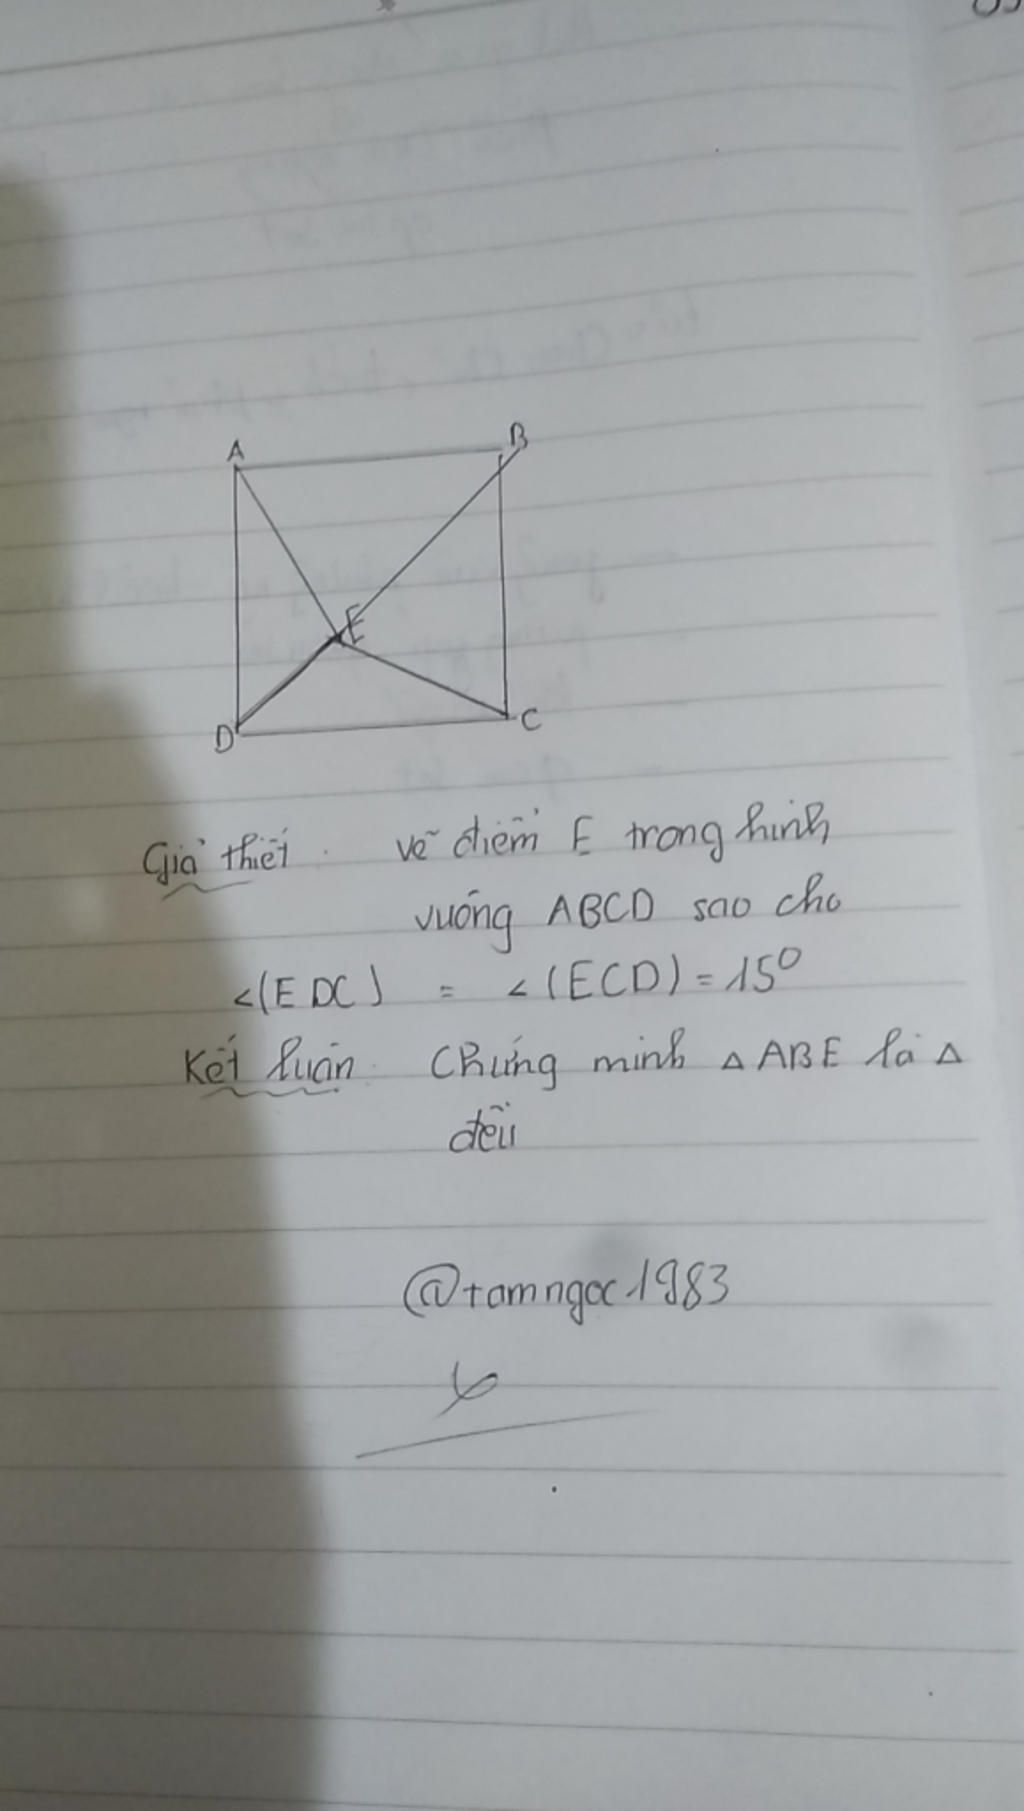 A
B
E
D
C
Giả thiết . vẽ điểm E trong hình
vuông ABCD sao cho
∠(EDC) = ∠(ECD) = 15⁰
Kết luận . Chứng minh △ ABE là △
đều
@tamngoc1983